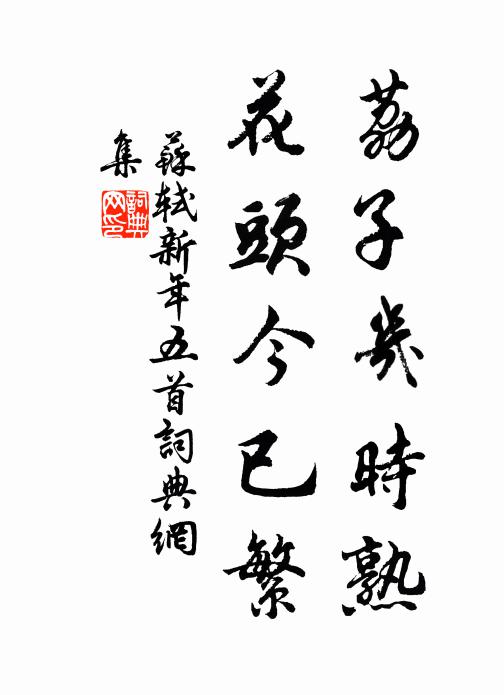 荔子幾時熟
花頭今已繁
蘇軾新年五首詞典網
集
詞典
网印